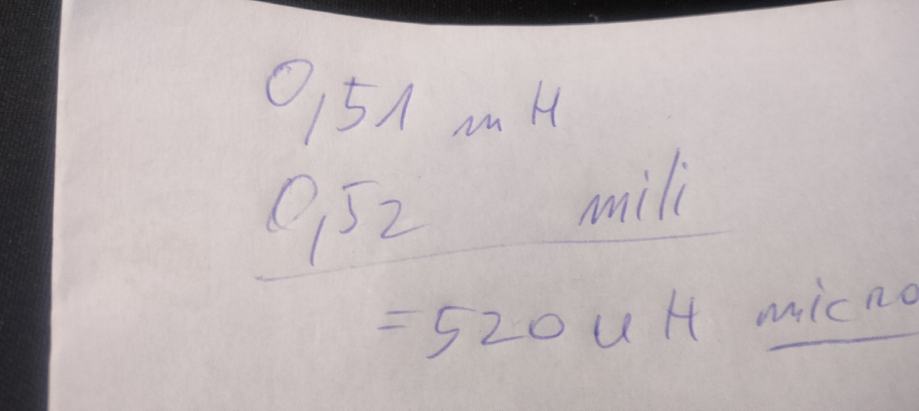 0,51 mH
0,52 mili
=520 uH micro